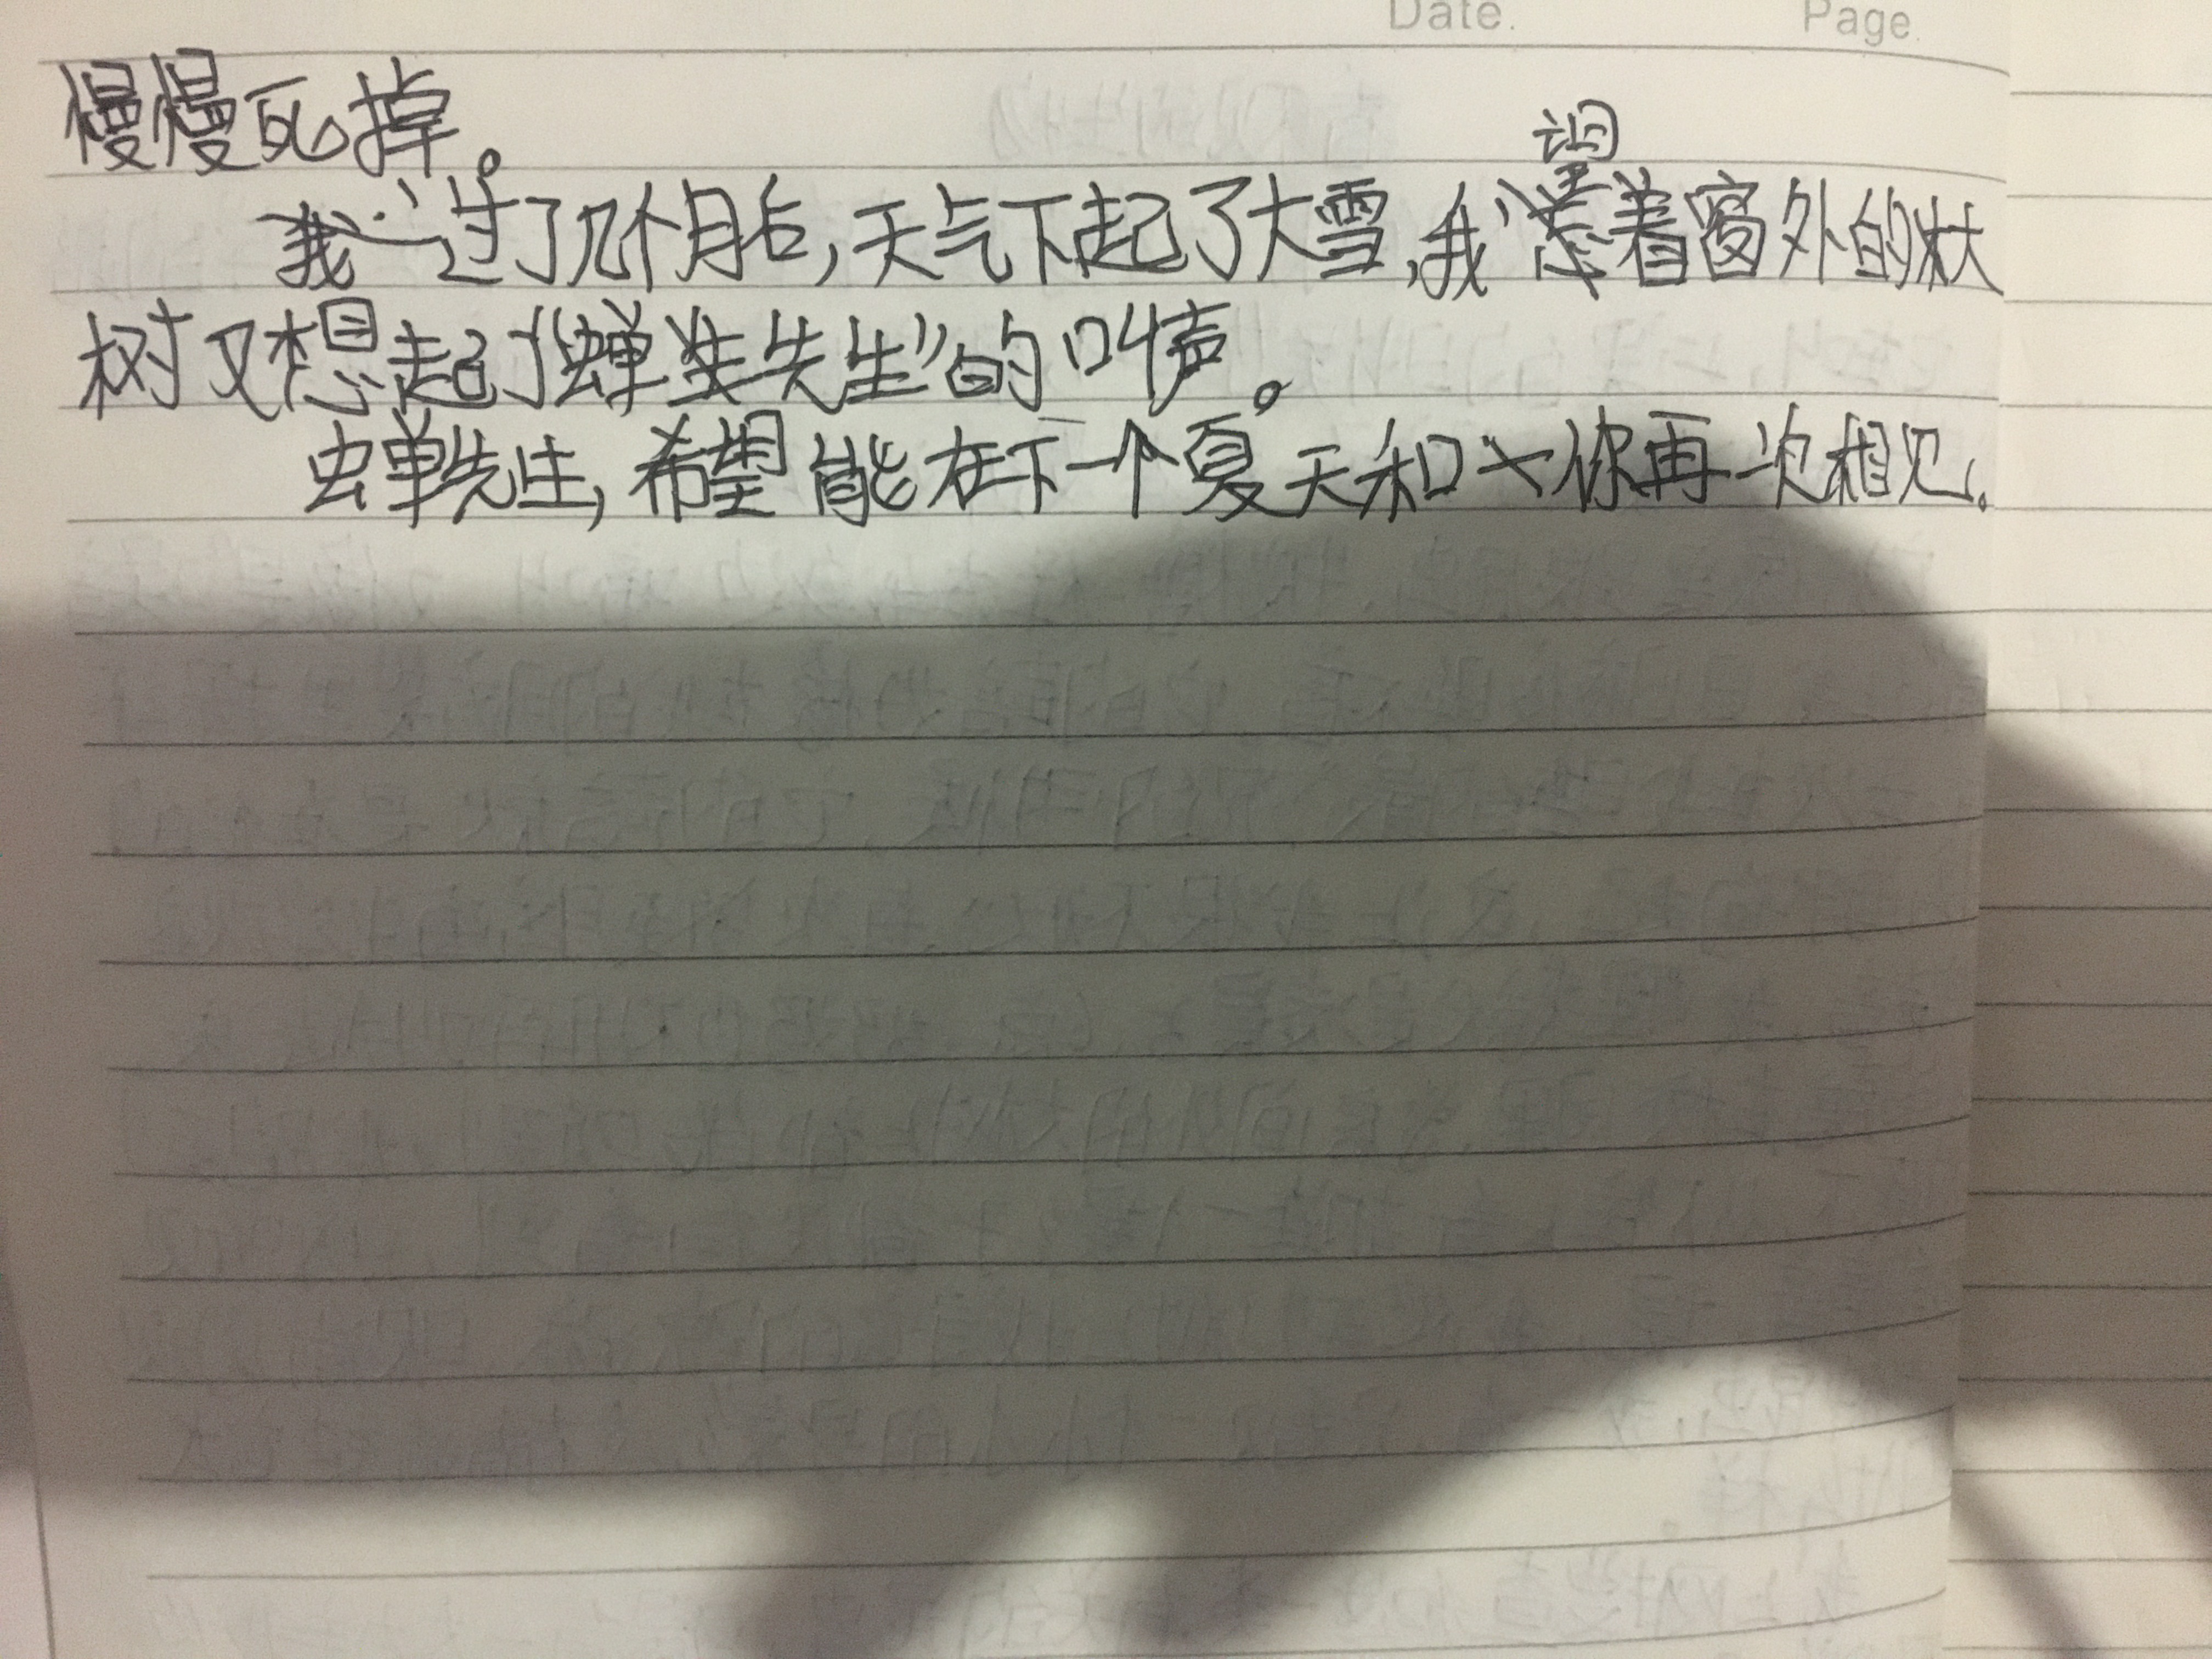 Date.
Page.
慢慢死掉。
过了几个月后,天气下起了大雪,我望着窗外的大
树又想起了“蝉先生”的叫声。
蝉先生,希望能在下一个夏天和你再一次相见。